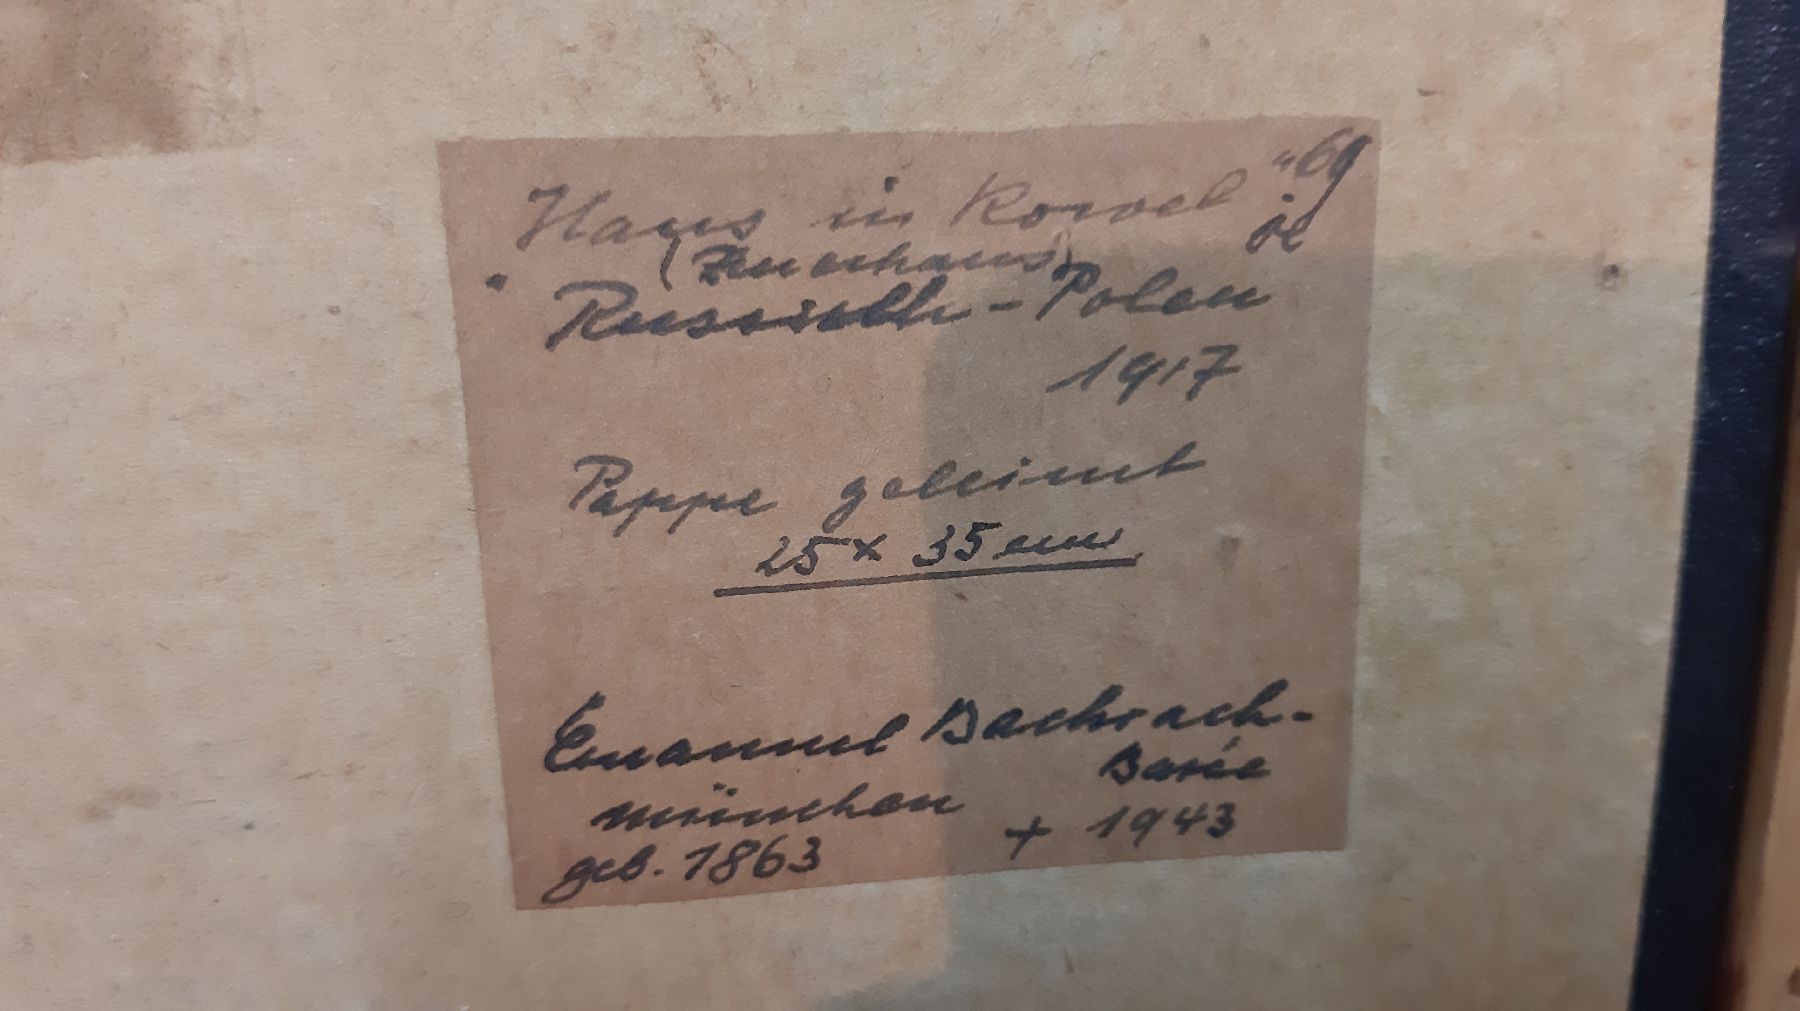 Haus in Kowel "69
je
" Russisch-Polen
1917
Pappe geleimt
25 x 35 cm
Emanuel Bachrach-
Barée
München
geb. 1863 + 1943